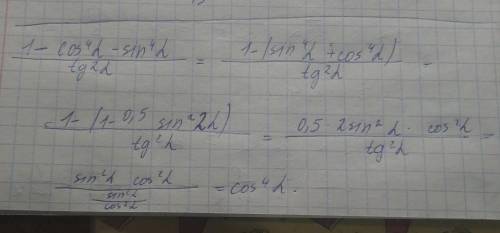 (1 - cos⁴α - sin⁴α) / tg²α = (1 - (sin⁴α + cos⁴α)) / tg²α =
(1 - (1 - 0,5 sin²2α)) / tg²α = (0,5 · 2sin²α · cos²α) / tg²α =
(sin²α cos²α) / (sin²α / cos²α) = cos⁴α.